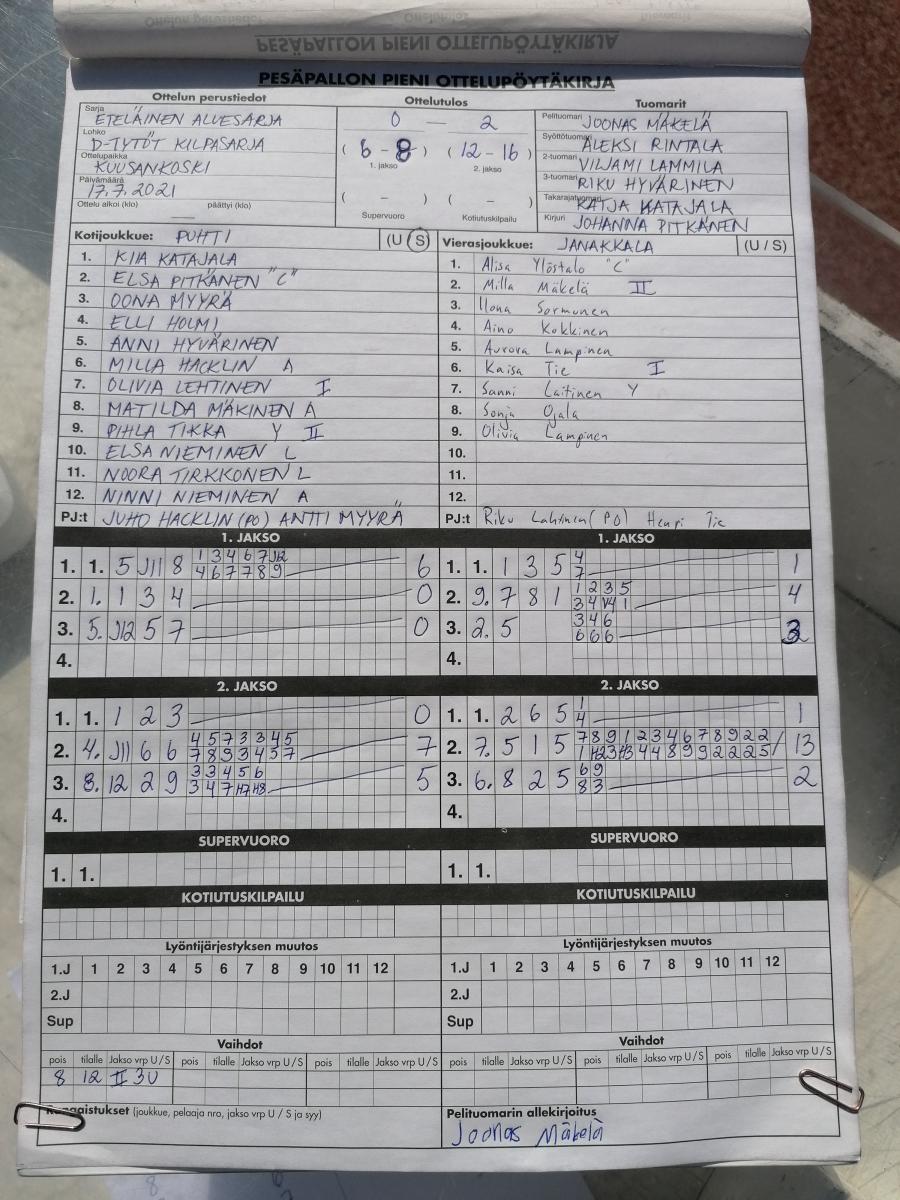 PESÄPALLON PIENI OTTELUPÖYTÄKIRJA
PESÄPALLON PIENI OTTELUPÖYTÄKIRJA
Ottelun perustiedot
Sarja ETELÄINEN ALUESARJA
Lohko D-TYTÖT KILPASARJA
Ottelupaikka KUUSANKOSKI
Päivämäärä 17.7.2021
Ottelu alkoi (klo) päättyi (klo)
Ottelutulos
0 — 2
( 6 - 8 ) ( 12 - 16 )
1. jakso 2. jakso
( - ) ( - )
Supervuoro Kotiutuskilpailu
Tuomarit
Pelituomari JOONAS MÄKELÄ
Syöttötuomari ALEKSI RINTALA
2-tuomari VILJAMI LAMMILA
3-tuomari RIKU HYVÄRINEN
Takarajatuomari KATJA KATAJALA
Kirjuri JOHANNA PITKÄNEN
Kotijoukkue: PUHTI (U S)
1. KIIA KATAJALA
2. ELSA PITKÄNEN "C"
3. OONA MYYRÄ
4. ELLI HOLMI
5. ANNI HYVÄRINEN
6. MILLA HACKLIN A
7. OLIVIA LEHTINEN I
8. MATILDA MÄKINEN A
9. PIHLA TIKKA Y II
10. ELSA NIEMINEN L
11. NOORA TIRKKONEN L
12. NINNI NIEMINEN A
PJ:t JUHO HACKLIN (PO) ANTTI MYYRÄ
Vierasjoukkue: JANAKKALA (U / S)
1. Alisa Ylöstalo "C"
2. Milla Mäkelä II
3. Ilona Sormunen
4. Aino Kokkinen
5. Aurora Lampinen
6. Kaisa Tie I
7. Sanni Laitinen Y
8. Sonja Ojala
9. Olivia Lampinen
10.
11.
12.
PJ:t Riku Lahtinen (PO) Henri Tie
1. JAKSO
1. 1. 5 J11 8 1 3 4 6 7 J12 6
4 6 7 7 8 9
2. 1. 1 3 4 0
3. 5. J12 5 7 0
4.
1. JAKSO
1. 1. 1 3 5 4 1
7
2. 9. 7 8 1 1 2 3 5 4
3. 2. 5 3 4 6 3
6 6 6
4.
2. JAKSO
1. 1. 1 2 3 0
2. 4. J11 6 6 4 5 7 3 3 4 5 7
7 8 9 3 4 5 7
3. 8. 12 2 9 3 3 4 5 6 5
3 4 7 H7 H8
4.
2. JAKSO
1. 1. 2 6 5 1 1
4
2. 7. 5 1 5 7 8 9 1 2 3 4 6 7 8 9 2 2 13
3. 6. 8 2 5 6 9 2
8 3
4.
SUPERVUORO
1. 1.
SUPERVUORO
1. 1.
KOTIUTUSKILPAILU
KOTIUTUSKILPAILU
Lyöntijärjestyksen muutos
1.J 1 2 3 4 5 6 7 8 9 10 11 12
2.J
Sup
Lyöntijärjestyksen muutos
1.J 1 2 3 4 5 6 7 8 9 10 11 12
2.J
Sup
Vaihdot
pois tilalle Jakso vrp U / S pois tilalle Jakso vrp U / S pois tilalle Jakso vrp U / S
8 12 II 3U
Vaihdot
pois tilalle Jakso vrp U / S pois tilalle Jakso vrp U / S pois tilalle Jakso vrp U / S
(joukkue, pelaaja nro, jakso vrp U / S ja syy)
Pelituomarin allekirjoitus
Joonas Mäkelä